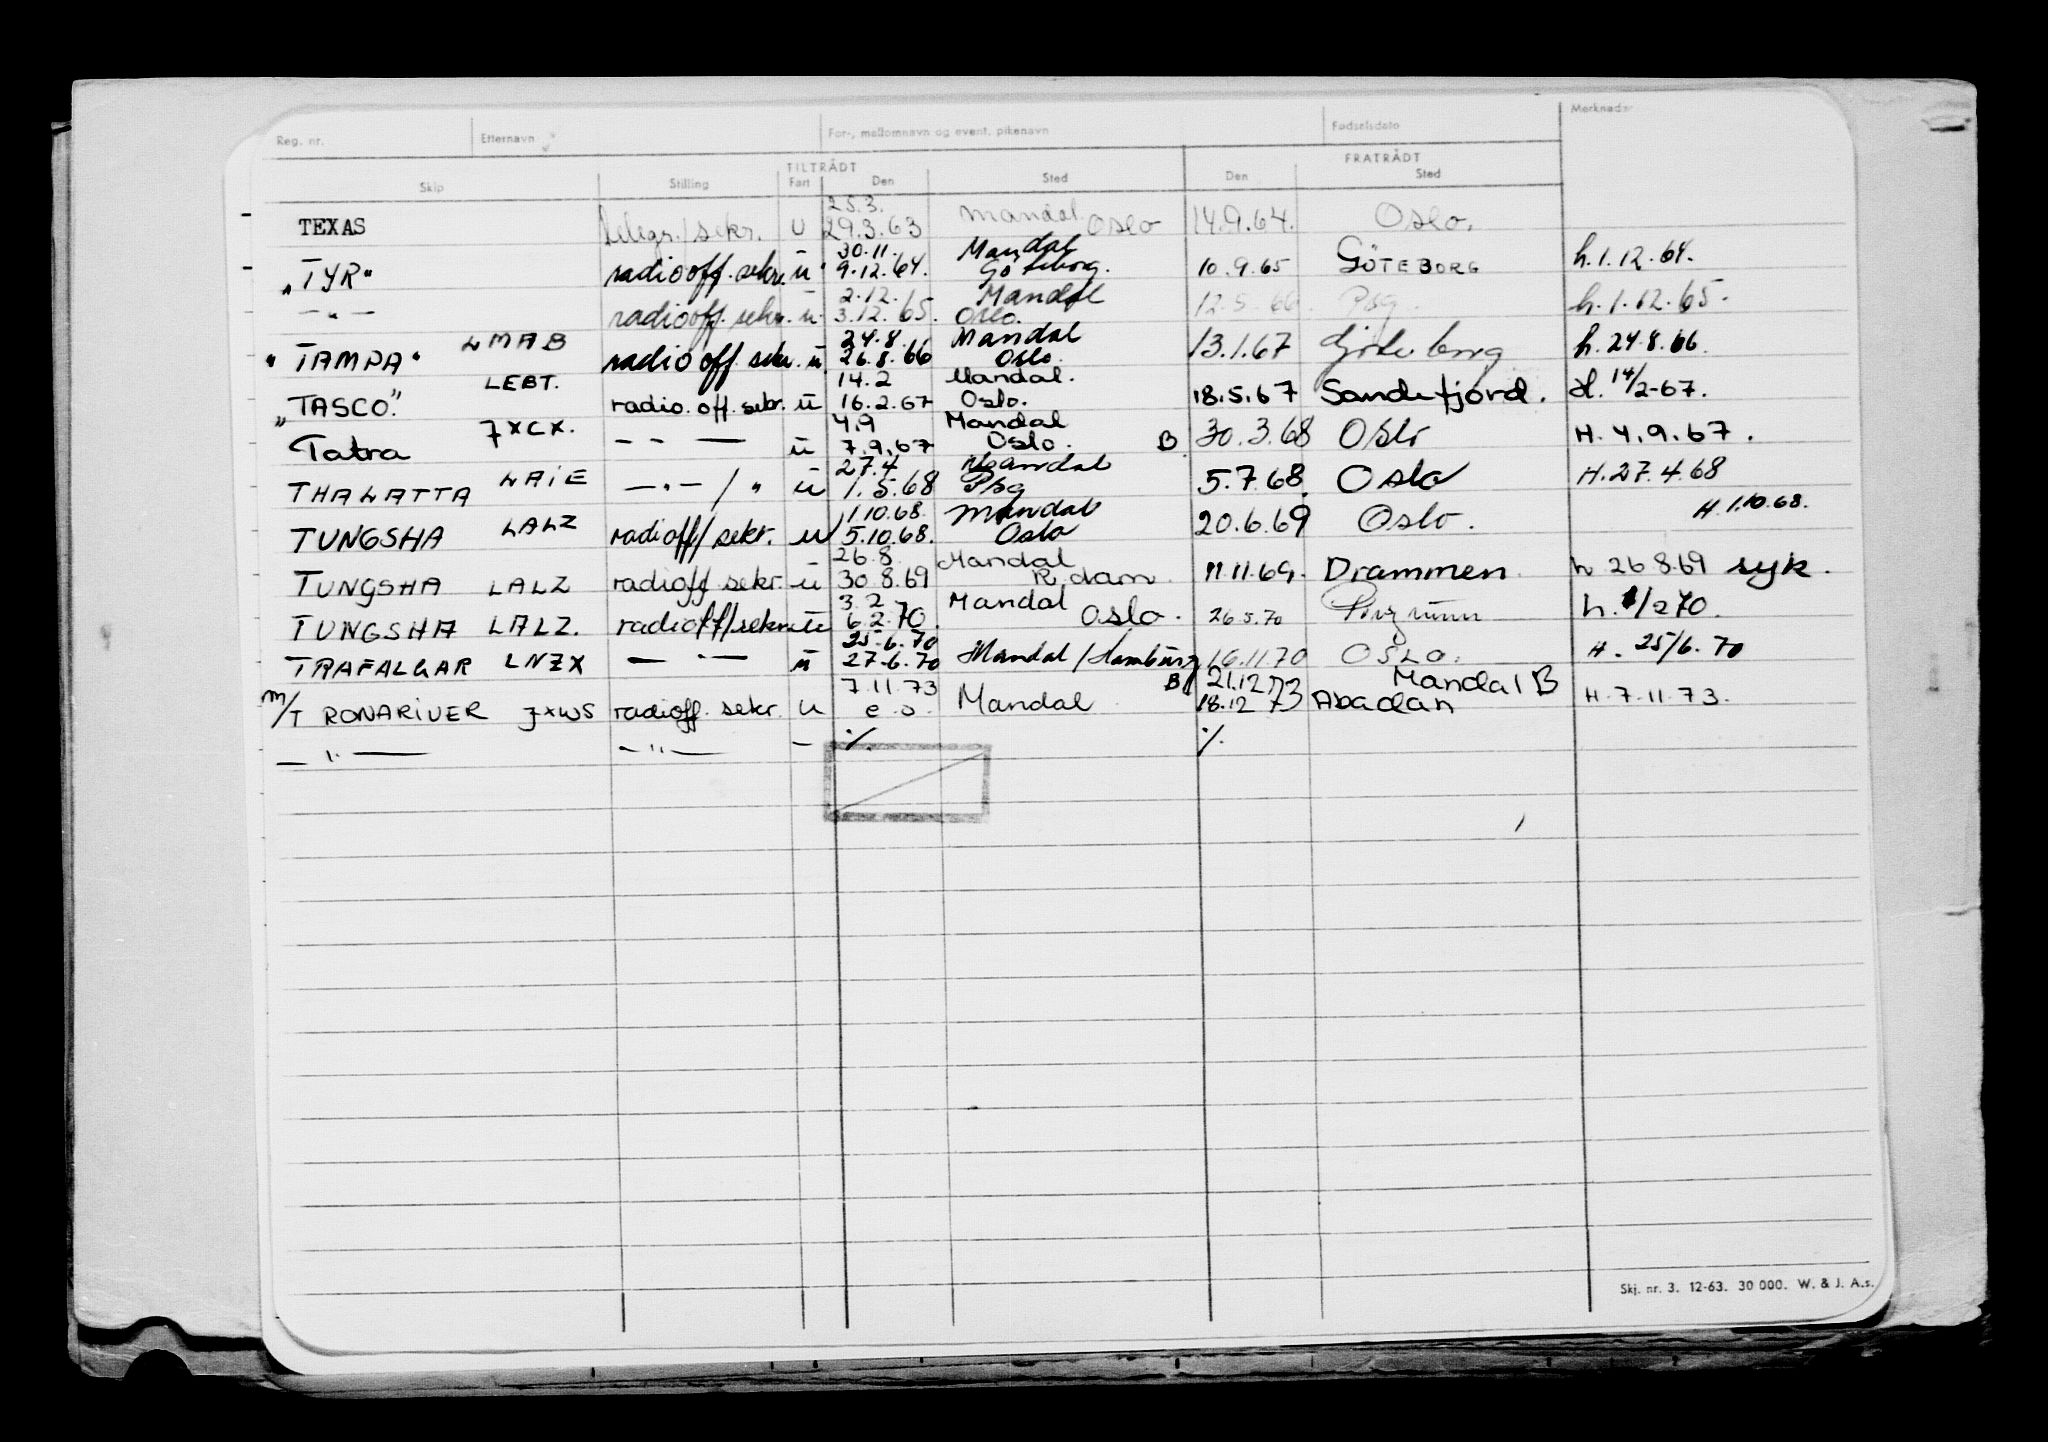 Reg. nr. Etternavn For-, mellomnavn og event. pikenavn Fødselsdato Merknader
TILTRÅDT FRATRÅDT
Skip Stilling Fart Den Sted Den Sted
25.3. Mandal
TEXAS telegr./sekr. u 29.3.63 Oslo 14.9.64. Oslo.
30.11. Mandal
"TYR" radiooff. sekr. u 9.12.64. Göteborg. 10.9.65 GÖTEBORG h.1.12.64.
2.12. Mandal
— " — radiooff. sekr. u. 3.12.65. Oslo. 12.5.66. Psg. h.1.12.65.
24.8. Mandal
"TAMPA" LMAB radio off. sekr. u. 26.8.66 Oslo. 13.1.67 Göteborg h.24.8.66.
14.2 Mandal.
"TASCO". LEBT. radio.off.sekr. u 16.2.67 Oslo. 18.5.67 Sandefjord. H. 14/2-67.
4.9 Mandal
Tatra JXCX. — - — u 7.9.67 Oslo. B 30.3.68 Oslo H.4.9.67.
27.4 Mandal
THALATTA LAIE — " — / " u 1.5.68 Psg 5.7.68 Oslo H.27.4.68
1.10.68. Mandal
TUNGSHA LALZ radioff/sekr. u 5.10.68. Oslo 20.6.69 Oslo. H.1.10.68.
26.8 Mandal
TUNGSHA LALZ radioff. sekr. u 30.8.69 R.dam. 11.11.69. Drammen. h 26.8.69 syk.
3.2 Mandal
TUNGSHA LALZ. radioff/sekr. u 6.2.70. Oslo. 26.5.70 h. /2 70.
25.6.70
TRAFALGAR LNZX — " — u 27.6.70 Mandal/Hamburg 16.11.70 OSLO. H. 25/6.70
7.11.73 B 21.12.73 Mandal B
M/T RONARIVER JXWS radioff. sekr. u e.o. Mandal 18.12 73 Abadan H.7.11.73.
— " — — " — — ./. ./.
Skj. nr. 3. 12-63. 30 000. W. & J. A.s.